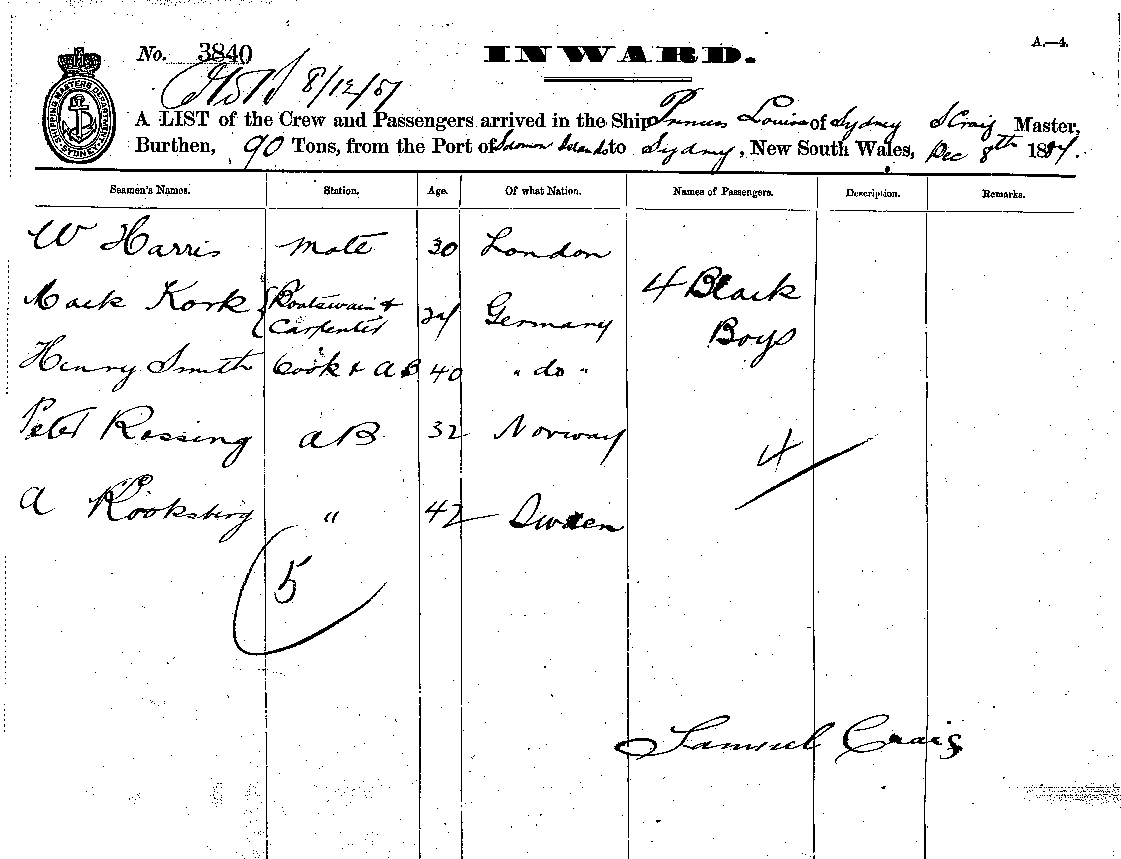 No. 3840
INWARD.
A.—4.
8/12/87
SHIPPING MASTERS DEPARTMENT SYDNEY
A LIST of the Crew and Passengers arrived in the Ship Princess Louise of Sydney S Craig Master,
Burthen, 90 Tons, from the Port of Solomon Islands to Sydney, New South Wales, Dec 8th 1887.
Seamen's Names. Station. Age. Of what Nation. Names of Passengers. Description. Remarks.
W Harris Mate 30 London
Mack Kork Boatswain & Carpenter 24 Germany 4 Black Boys
Henry Smith Cook & AB 40 " do "
Peter Rossing AB 32 Norway 4
A Rooksberg " 42 Sweden
5
Samuel Craig